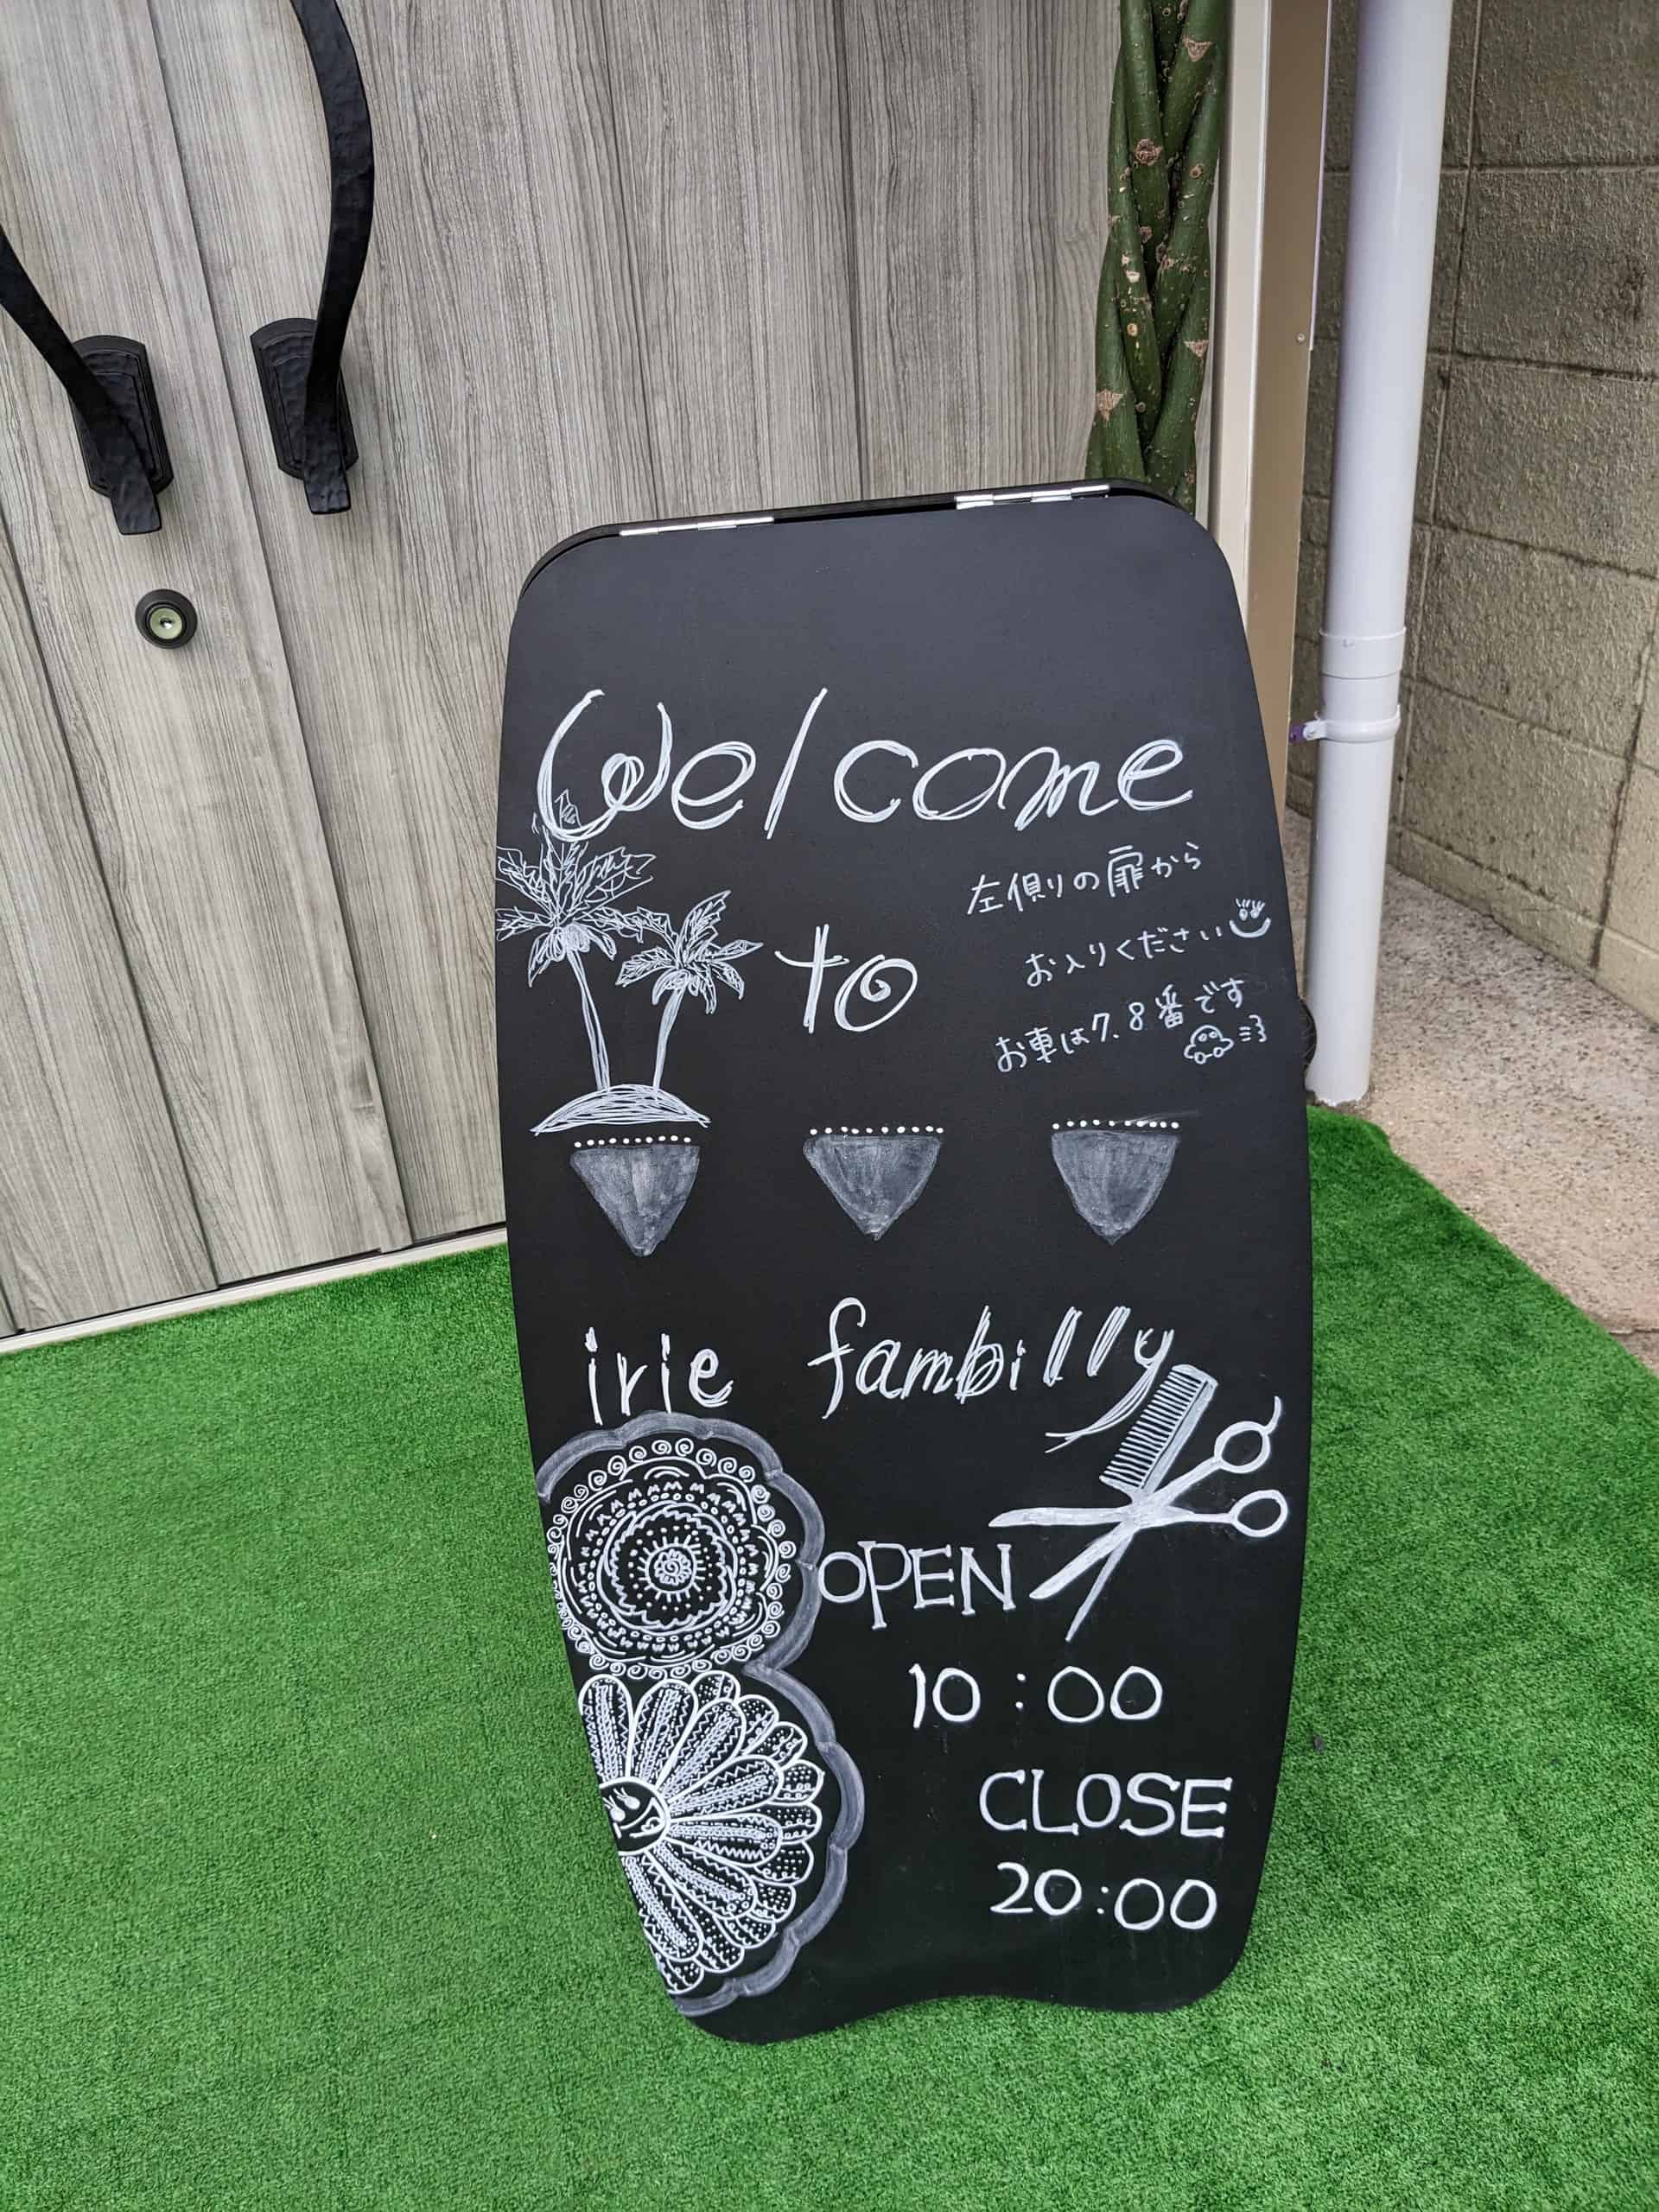 Welcome
左側りの扉から
お入りください
to
お車は7.8番です
irie fambilly
OPEN
10:00
CLOSE
20:00